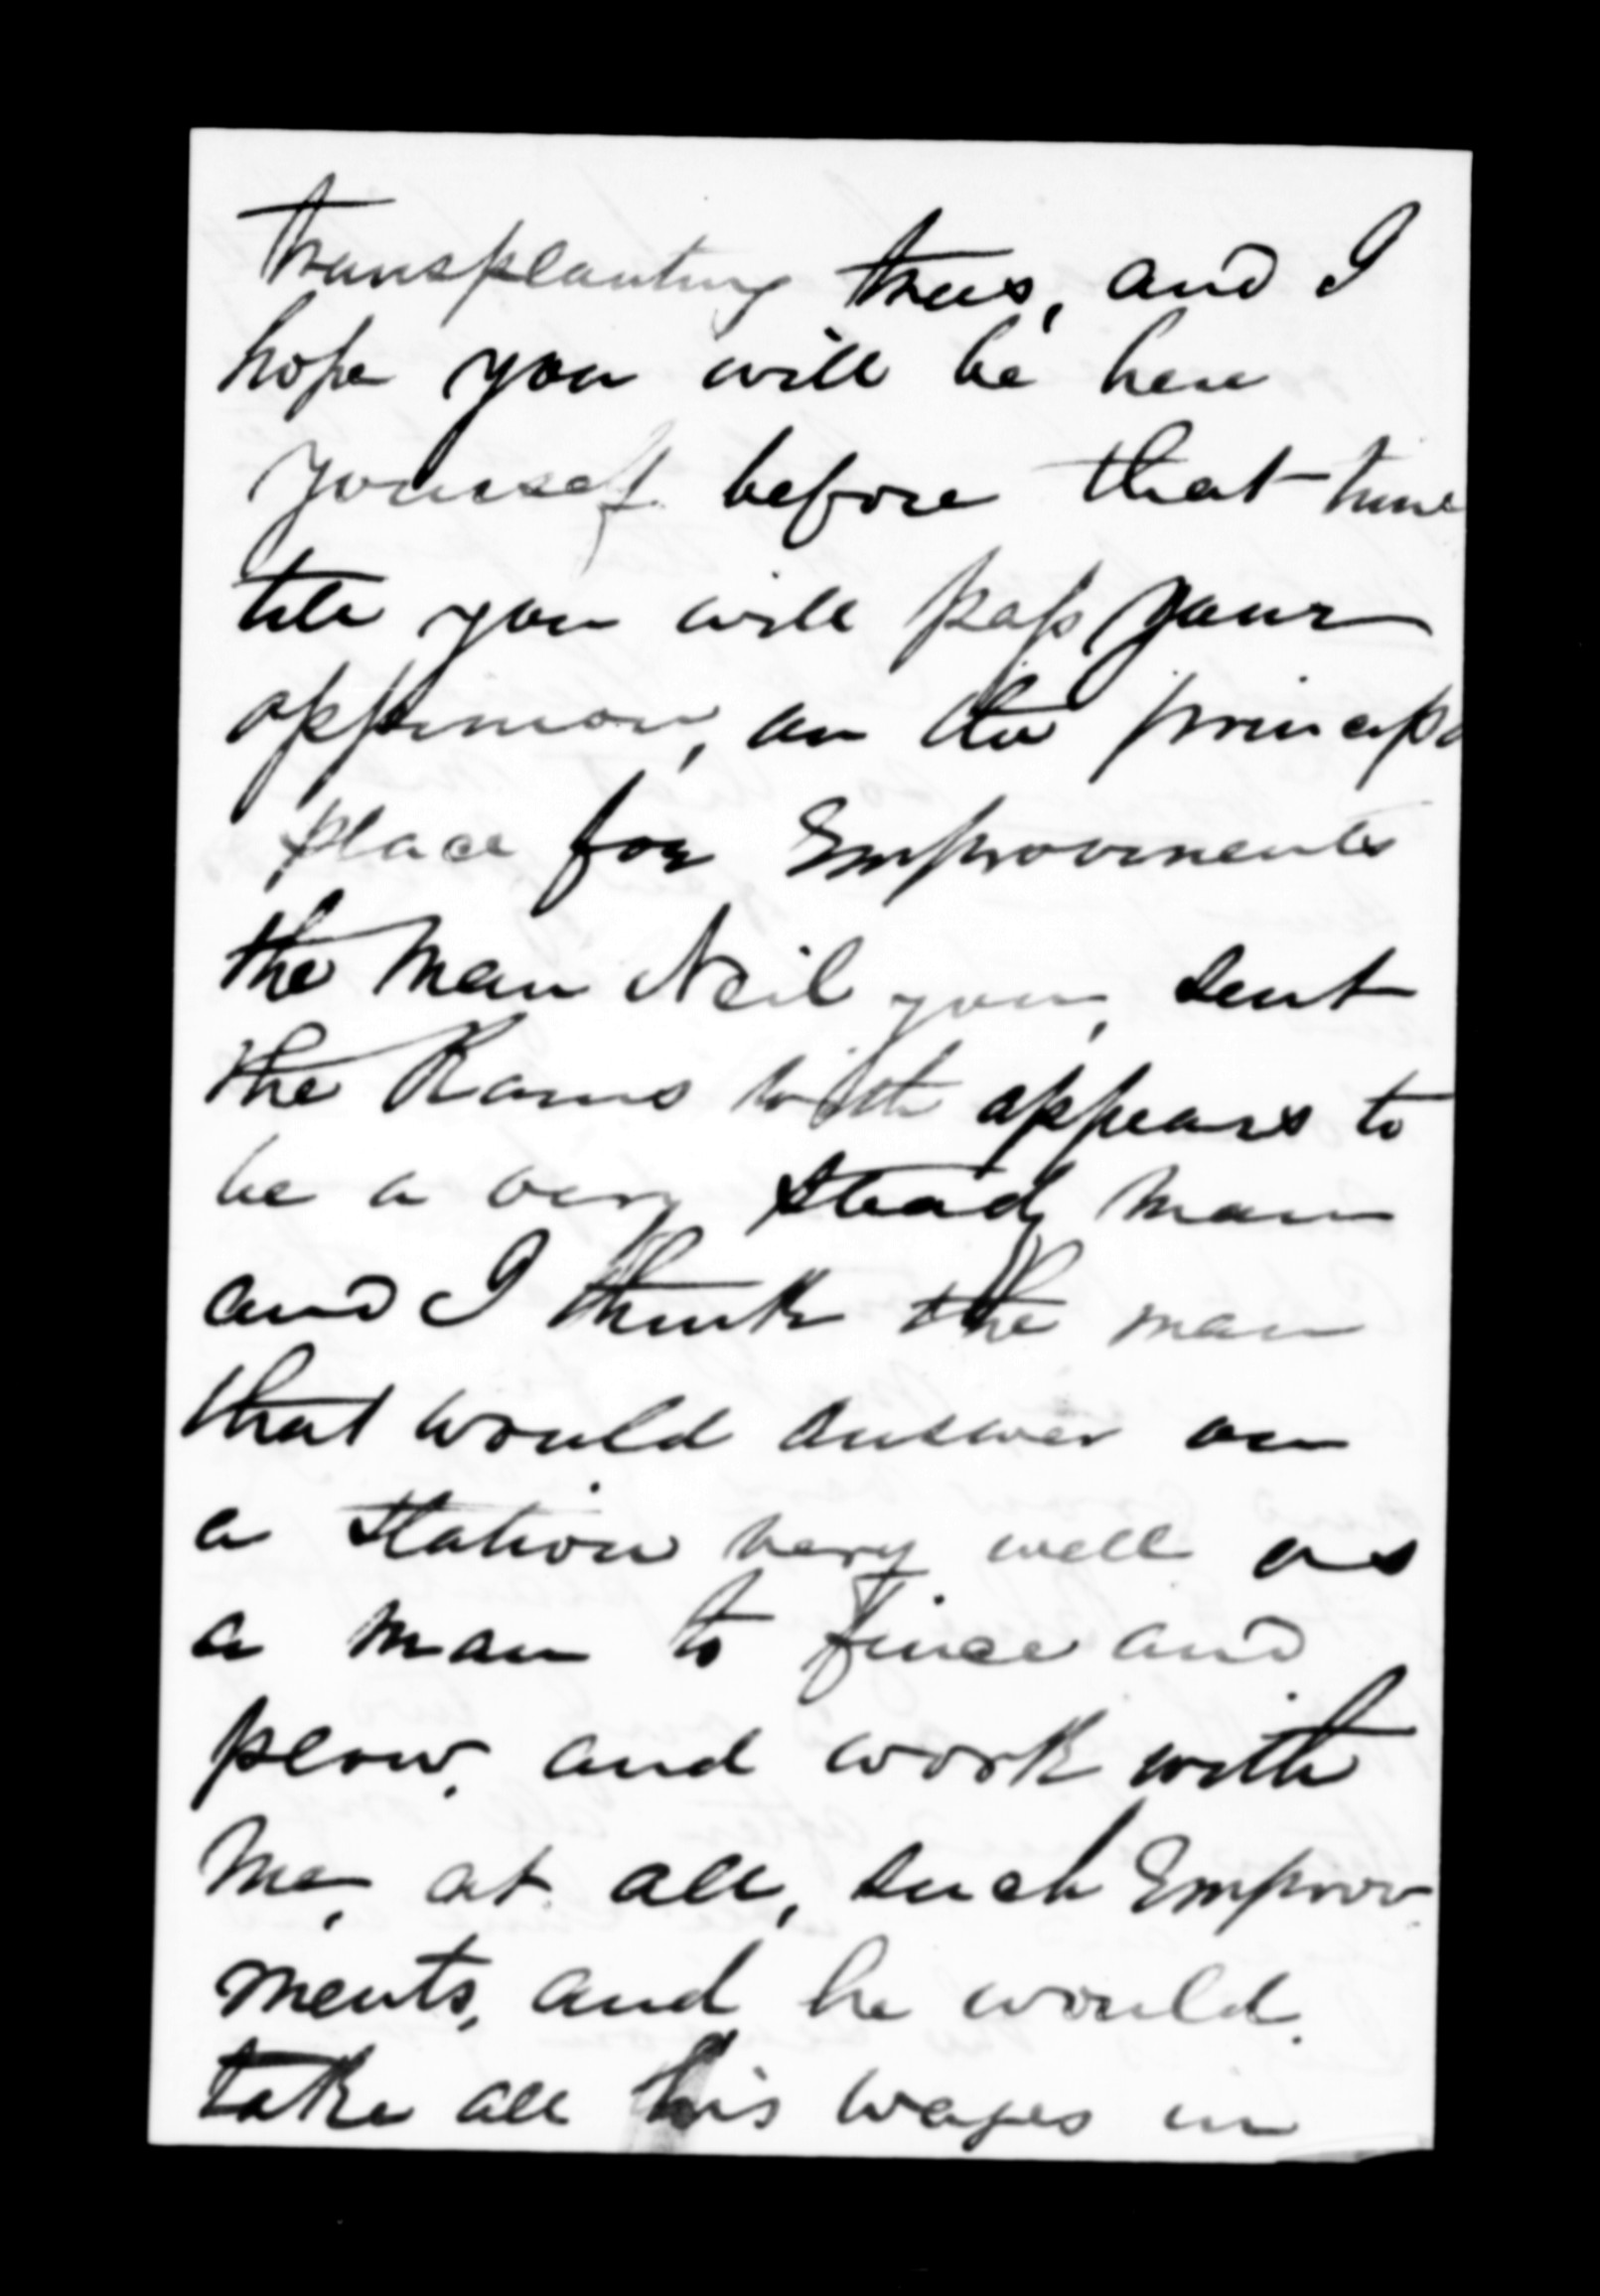 transplanting trees, and I
hope you will be here
yourself before that time
till you will pass your
oppinion, on the principa
place for Improvements
the man Neil you, sent
the Rams with appears to
be a very steady man
and I think the man
that would answer on
a Station very well as
a man to fence and
plow, and work with
me, at all, such Improv
ments, and he would
take all his wages in